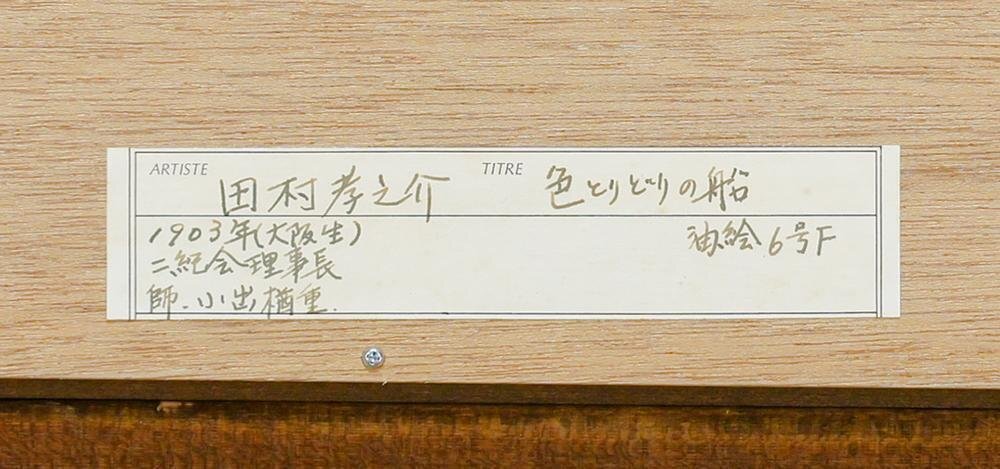 ARTISTE 田村孝之介 TITRE 色とりどりの船
1903年(大阪生) 油絵6号F
二紀会理事長
師.小出楢重.